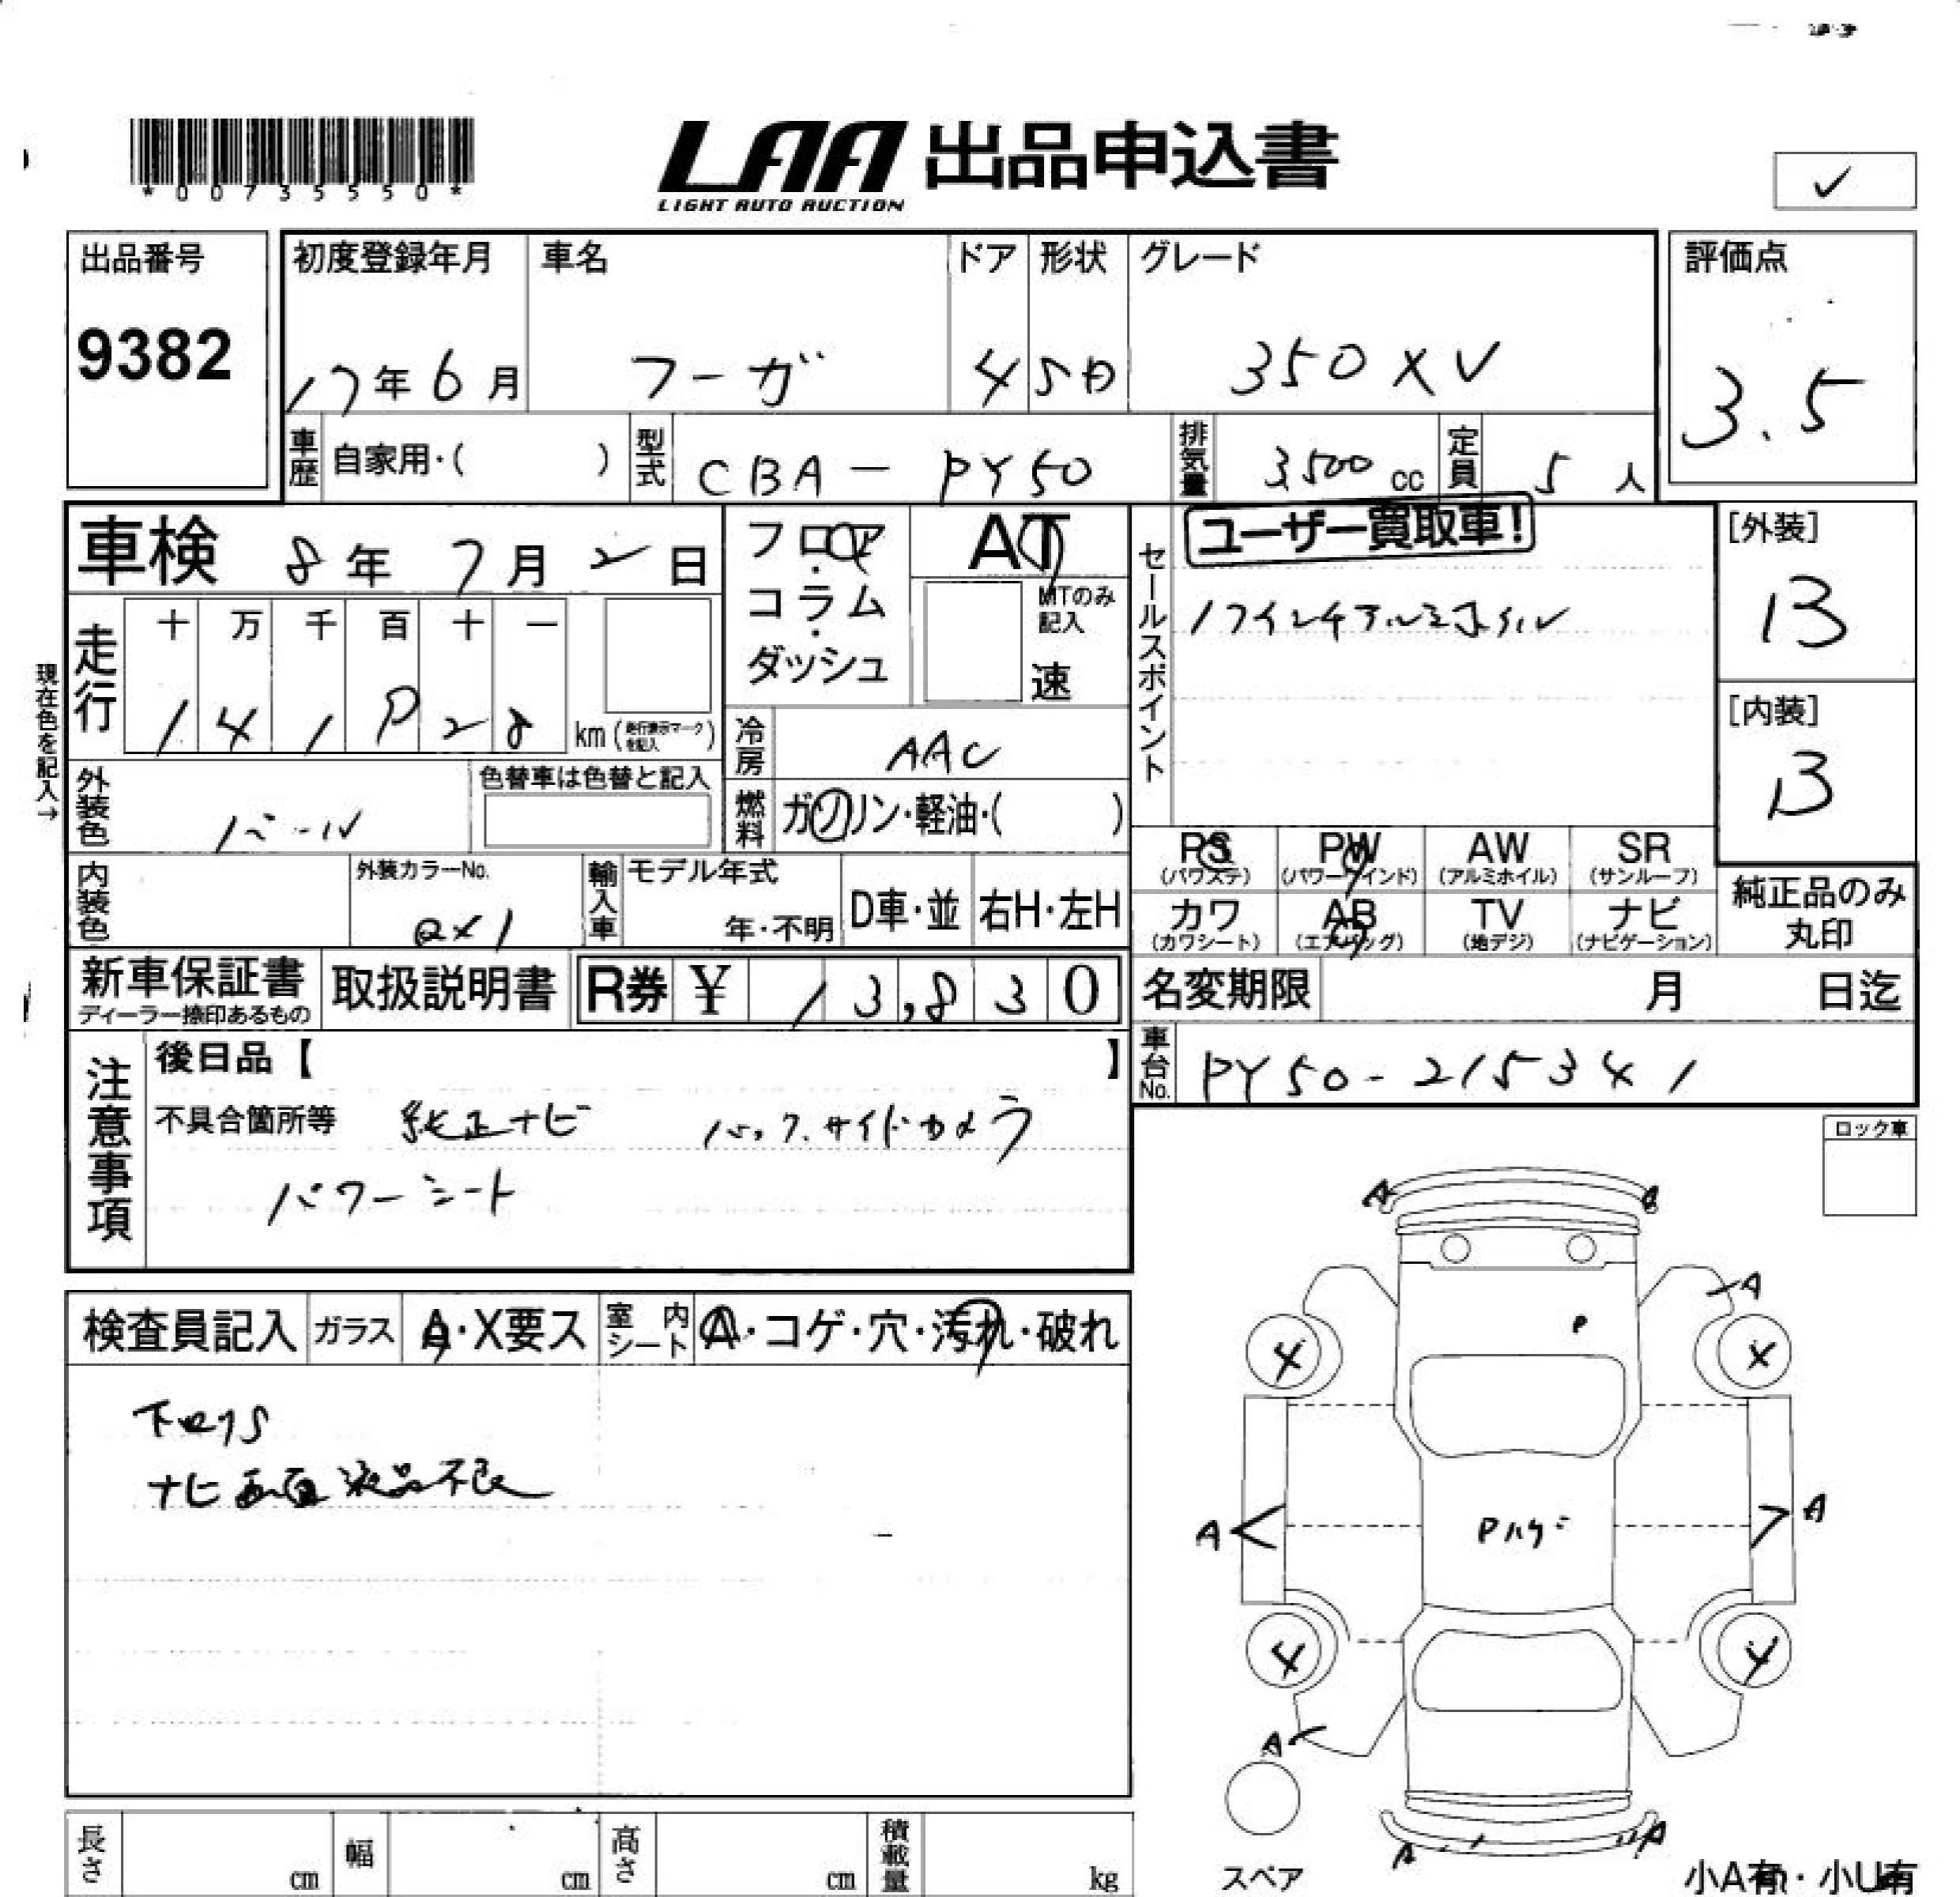 *00735550*
LAA 出品申込書
LIGHT AUTO AUCTION
✓
出品番号
9382
初度登録年月
17年6月
車名
フーガ
ドア
4
形状
SD
グレード
350XV
評価点
3.5
車歴 自家用・( )
型式 CBA-PY50
排気量 3,500cc
定員 5人
車検 8年7月2日
フロア・コラム・ダッシュ
AT
MTのみ記入
速
セールスポイント
ユーザー買取車!
[外装]
B
[内装]
B
現在色を記入→
走行
十 万 千 百 十 一
km(走行表示マークを記入)
冷房 AAC
燃料 ガソリン・軽油・( )
外装色 パール
色替車は色替と記入
内装色
外装カラーNo.
QX1
輸入車
モデル年式
年・不明
D車・並
右H・左H
PS (パワステ)
PW (パワーウインド)
AW (アルミホイル)
SR (サンルーフ)
カワ (カワシート)
AB (エアバッグ)
TV (地デジ)
ナビ (ナビゲーション)
純正品のみ丸印
新車保証書
ディーラー捺印あるもの
取扱説明書
R券 ¥ 13,830
名変期限 月 日迄
車台No. PY50-215341
注意事項
後日品【 】
不具合箇所等 純正ナビ バック.サイドカメラ
パワーシート
ロック車
検査員記入
ガラス A・X要ス
室内シート A・コゲ・穴・汚れ・破れ
下回りS
ナビ画面液晶不良
A
A
P
4
A
A
Pハゲ
4
A
A
A
スペア
小A有・小U有
長さ cm
幅 cm
高さ cm
積載量 kg